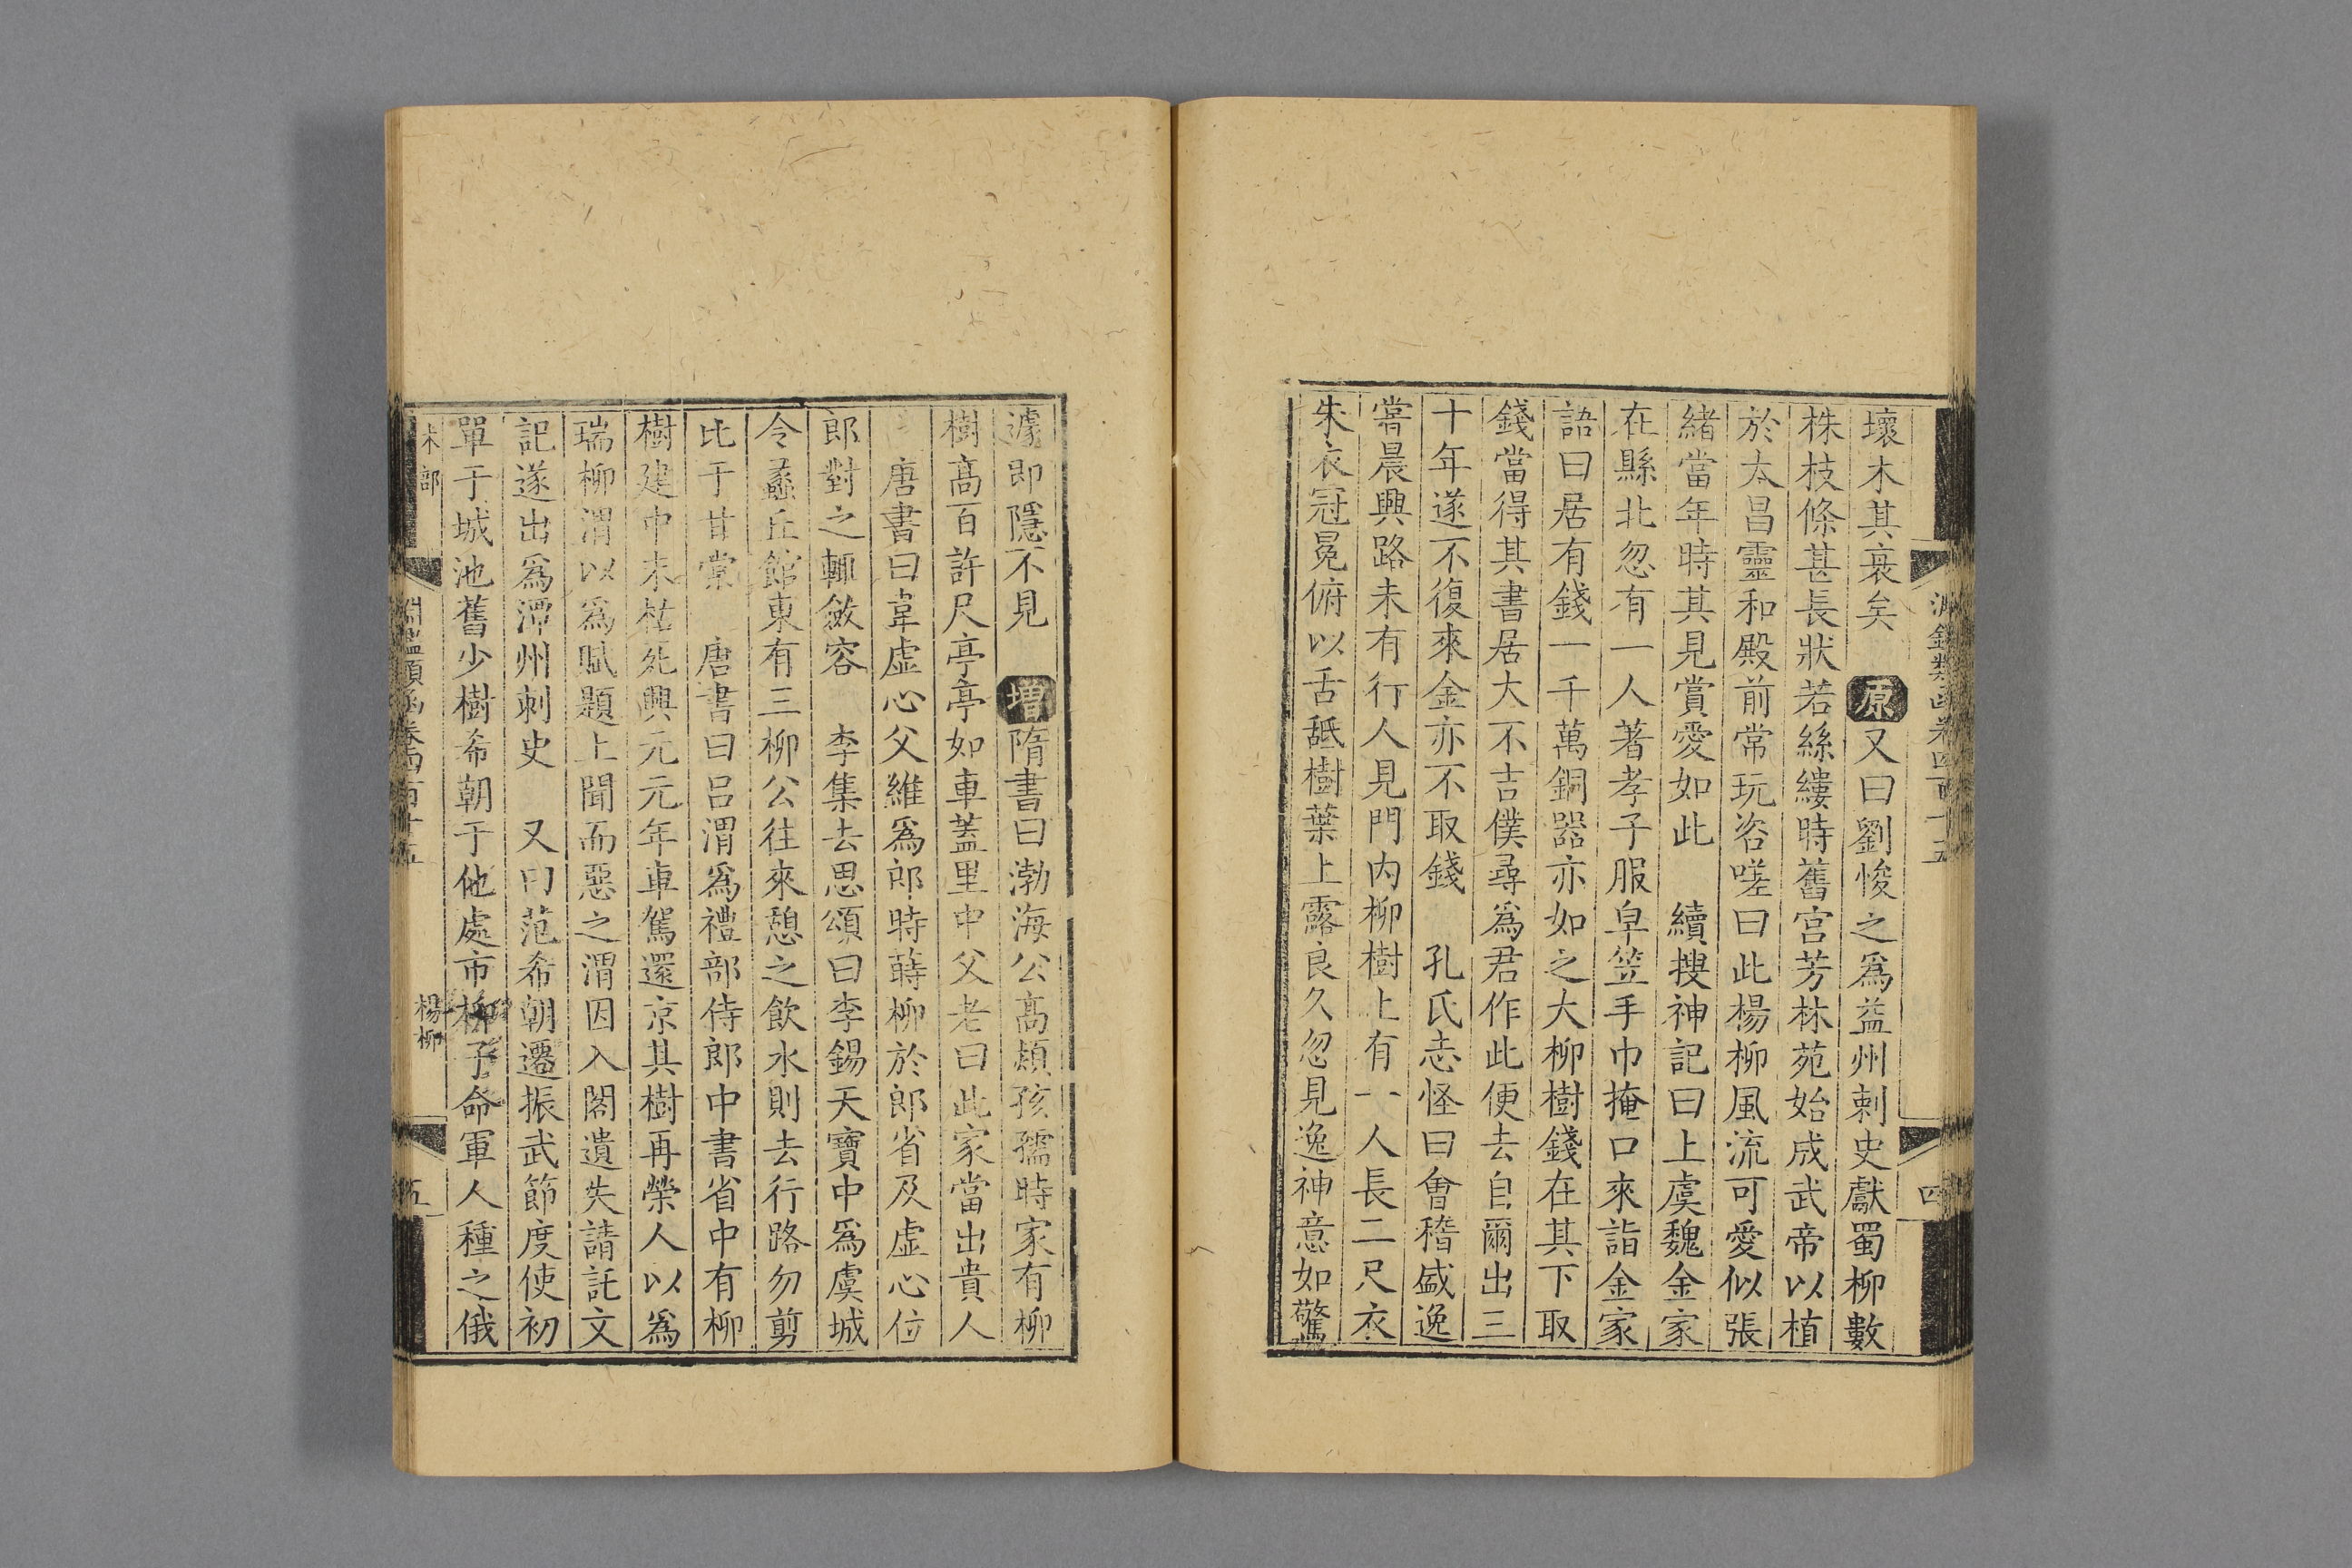 淵鑑類函卷四百十五
四
壞木其衰矣　原又曰劉悛之爲益州刺史獻蜀柳數
株枝條甚長狀若絲縷時舊宫芳林苑始成武帝以植
於太昌靈和殿前常玩咨嗟曰此楊柳風流可愛似張
緒當年時其見賞愛如此　續搜神記曰上虞魏金家
在縣北忽有一人著孝子服皁笠手巾掩口來詣金家
語曰居有錢一千萬銅器亦如之大柳樹錢在其下取
錢當得其書居大不吉僕尋爲君作此便去自爾出三
十年遂不復來金亦不取錢　孔氏志怪曰會稽盛逸
常晨興路未有行人見門内柳樹上有一人長二尺衣
朱衣冠冕俯以舌舐樹葉上露良久忽見逸神意如驚
遽即隱不見　増隋書曰渤海公髙熲孩孺時家有柳
樹髙百許尺亭亭如車蓋里中父老曰此家當出貴人
唐書曰韋虚心父維爲郎時蒔柳於郎省及虚心位
郎對之輒斂容　李集去思頌曰李錫天寶中爲虞城
令蠡丘館東有三柳公往來憩之飲水則去行路勿剪
比于甘棠　唐書曰吕渭爲禮部侍郎中書省中有柳
樹建中末枯死興元元年車駕還京其樹再榮人以爲
瑞柳渭以爲賦題上聞而惡之渭因入閣遺失請託文
記遂出爲潭州刺史　又曰范希朝遷振武節度使初
單于城池舊少樹希朝于他處市柳子命軍人種之俄
木部
淵鑑類函卷四百十五
楊柳
五